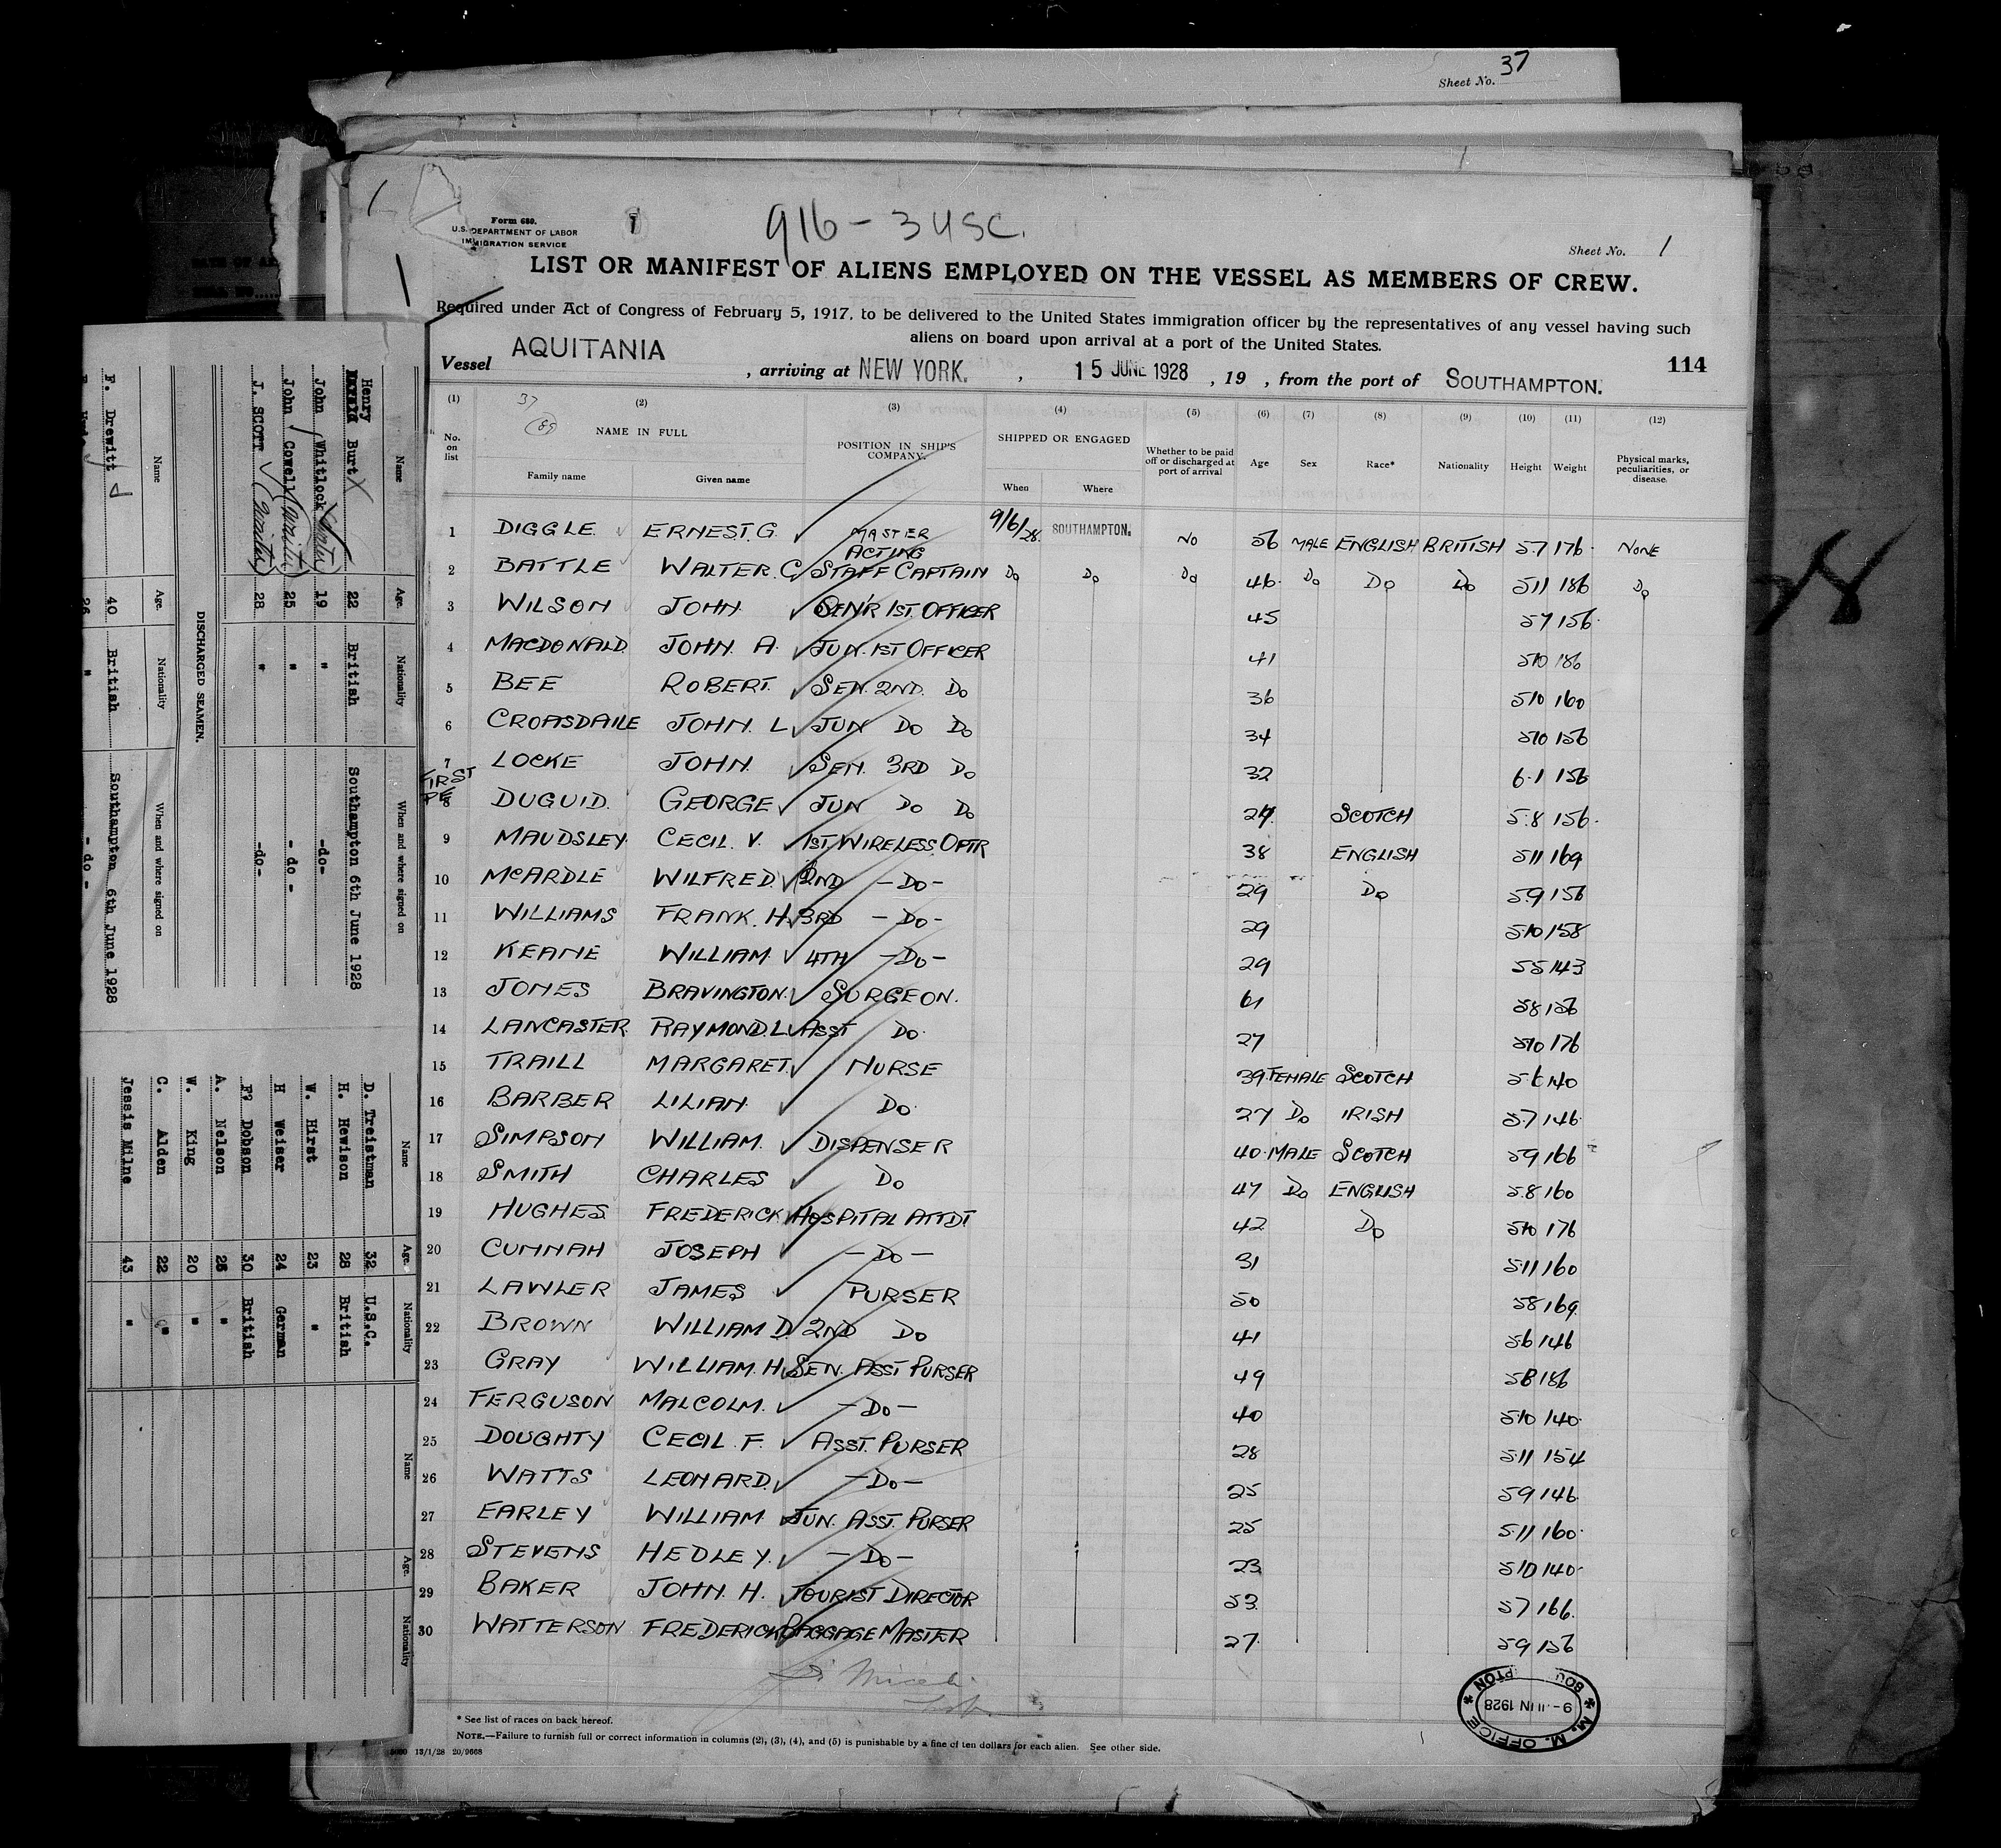 Sheet No. 37
Form 680.
U.S. DEPARTMENT OF LABOR
IMMIGRATION SERVICE
916 - 3 USC.
Sheet No. 1
LIST OR MANIFEST OF ALIENS EMPLOYED ON THE VESSEL AS MEMBERS OF CREW.
Required under Act of Congress of February 5, 1917, to be delivered to the United States immigration officer by the representatives of any vessel having such
aliens on board upon arrival at a port of the United States.
Vessel AQUITANIA, arriving at NEW YORK., 15 JUNE 1928, 19 , from the port of SOUTHAMPTON. 114
(1) (2) (3) (4) (5) (6) (7) (8) (9) (10) (11) (12)
37
89
No. on list NAME IN FULL POSITION IN SHIP'S COMPANY. SHIPPED OR ENGAGED Whether to be paid off or discharged at port of arrival Age Sex Race* Nationality Height Weight Physical marks, peculiarities, or disease
Family name Given name When Where
1 DIGGLE ERNEST. G. MASTER 9/6/28. SOUTHAMPTON. NO 56 MALE ENGLISH BRITISH 5.7 176 NONE
2 BATTLE WALTER. C ACTING STAFF CAPTAIN Do Do Do 46 Do Do Do 511 186 Do
3 WILSON JOHN SEN'R 1ST. OFFICER 45 57 156
4 MACDONALD JOHN. A. JUN. 1ST OFFICER 41 510 186
5 BEE ROBERT. SEN. 2ND. Do 36 510 160
6 CROASDAILE JOHN. L JUN Do Do 34 510 156
7 LOCKE JOHN SEN. 3RD Do 32 6.1 156
FIRST
8 DUGUID. GEORGE JUN Do Do 24 SCOTCH 5.8 156
9 MAUDSLEY CECIL. V. 1ST. WIRELESS. OPTR 38 ENGLISH 511 169
10 MCARDLE WILFRED. 2ND - Do - 29 Do 59 156
11 WILLIAMS FRANK. H. 3RD - Do - 29 510 158
12 KEANE WILLIAM 4TH - Do - 29 55 143
13 JONES BRAVINGTON. SURGEON. 61 58 156
14 LANCASTER RAYMOND. L. ASST Do. 27 510 176
15 TRAILL MARGARET. NURSE 39 FEMALE SCOTCH 5.6 140
16 BARBER LILIAN. Do. 27 Do IRISH 5.7 146
17 SIMPSON WILLIAM. DISPENSER 40 MALE SCOTCH 59 166
18 SMITH CHARLES Do 47 Do ENGLISH 5.8 160
19 HUGHES FREDERICK HOSPITAL ATTDT 42 Do 510 176
20 CUNNAH JOSEPH - Do - 31 511 160
21 LAWLER JAMES PURSER 50 58 169
22 BROWN WILLIAM D. 2ND Do 41 56 146
23 GRAY WILLIAM. H. SEN. ASST PURSER 49 58 186
24 FERGUSON MALCOLM. - Do - 40 510 140
25 DOUGHTY CECIL. F. ASST. PURSER 28 511 154
26 WATTS LEONARD. - Do - 25 59 146
27 EARLEY WILLIAM JUN. ASST. PURSER 25 511 160
28 STEVENS HEDLEY. - Do - 23 510 140
29 BAKER JOHN. H. TOURIST DIRECTOR 53 57 166.
30 WATTERSON FREDERICK BAGGAGE MASTER 27 59 156
* See list of races on back hereof.
NOTE.—Failure to furnish full or correct information in columns (2), (3), (4), and (5) is punishable by a fine of ten dollars for each alien. See other side.
13/1/28 20/9668
M. M. OFFICE SOU PTON
9 - JUN 1928
Name Age. Nationality When and where signed on
Henry Burt 22 British Southampton 6th June 1928
John Whitlock 19 " -do-
John Cowell 25 " - do -
J. SCOTT 28 " -do-
DISCHARGED SEAMEN.
Name Age. Nationality When and where signed on
F. Drewitt 40 British Southampton 6th June 1928
26 " - do -
Name Age. Nationality
D. Treistman 32 U.S.C.
H. Hewison 28 British
W. Hirst 23 "
H Weiser 24 German
F. Dobson 30 British
A. Nelson 25 "
W. King 20 "
C. Alden 22 "
Jessie Milne 43 "
Name Age. Nationality